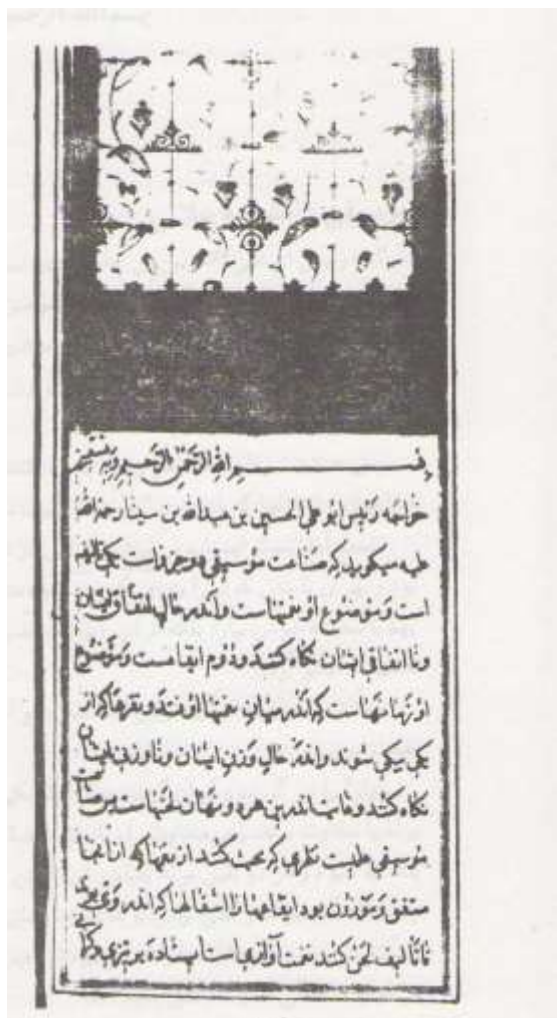 بسم الله الرحمن الرحیم وبه نستعین
خواجه رئیس ابو علی الحسین بن عبدالله بن سینا رحمة الله
علیه میکوید که صناعت موسیقی دو جزو است یکی تالیف
است و موضوع او نغمهاست و اندر حال اتفاق ایشان
و نا اتفاقی ایشان نکاه کنند و دوم ایقاست و موضوع
او زمانهاست که اندر میان نغمها اوفتد و نقرها که از
یکی بیکی شوند و اندر حال وزن ایشان و ناوزنی ایشان
نکاه کنند و غایت اندرین هر دو نهادن لحنهاست پس
موسیقی علمیست نظری که بحث کنند از نغمها که
متفق و موزون بود ایقاعها را که اندر وی
تا تالیف لحن کنند نغمت آوازیست ایستاده بر تیزی و